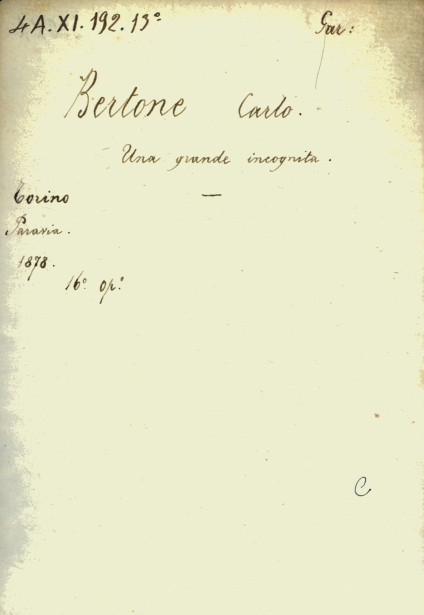 4A.XI.192.13° Gar:
Bertone Carlo.
Una grande incognita.
—
Torino
Paravia.
1878.
16° op°
C